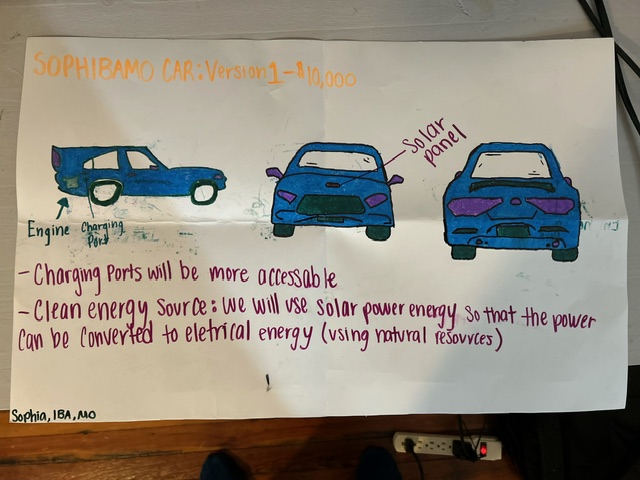 SOPHIBAMO CAR: Version 1 - $10,000
Solar
panel
Engine
Charging
Port
- Charging Ports will be more accessable
- Clean energy source: we will use solar power energy so that the power
can be converted to eletrical energy (using natural resources)
Sophia, IBA, MO